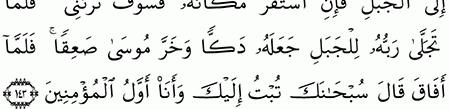 إِلَى ٱلْجَبَلِ فَإِنِ ٱسْتَقَرَّ مَكَانَهُۥ فَسَوْفَ تَرَىٰنِى ۚ فَلَمَّا
تَجَلَّىٰ رَبُّهُۥ لِلْجَبَلِ جَعَلَهُۥ دَكًّا وَخَرَّ مُوسَىٰ صَعِقًا ۚ فَلَمَّآ
أَفَاقَ قَالَ سُبْحَـٰنَكَ تُبْتُ إِلَيْكَ وَأَنَا۠ أَوَّلُ ٱلْمُؤْمِنِينَ ﴿١٤٣﴾